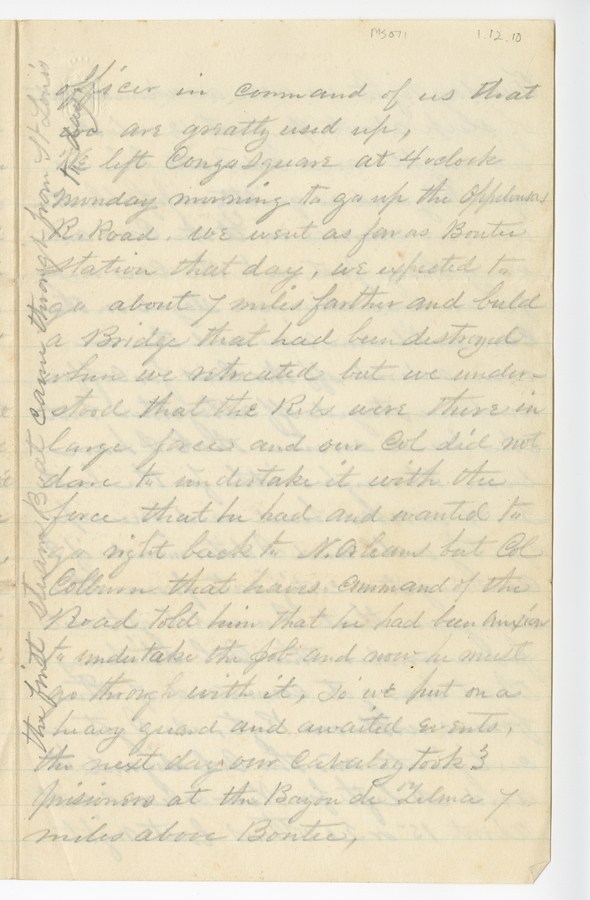 MS071 1.12.10
officer in command of us that
we are greatly used up,
We left Conga square at 4 oclock
Monday morning to go up the Oppelousas
R. Road. We went as far as Boutee
Station that day, we expected to
go about 7 miles farther and build
a Bridge that had been destroyed
when we retreated but we under-
stood that the Rebs were there in
large force and our Col did not
dare to undertake it with the
force that he had and wanted to
go right back to N. Orleans but Col
Colburn that haves command of the
Road told him that he had been anxious
to undertake the job and now he must
go through with it, So we put on a
heavy guard and awaited events,
the next day our Cavalry took 3
prisioners at the Bayou de Zelma 7
miles above Boutee,
the first steam Boat came through from St Louis
to day